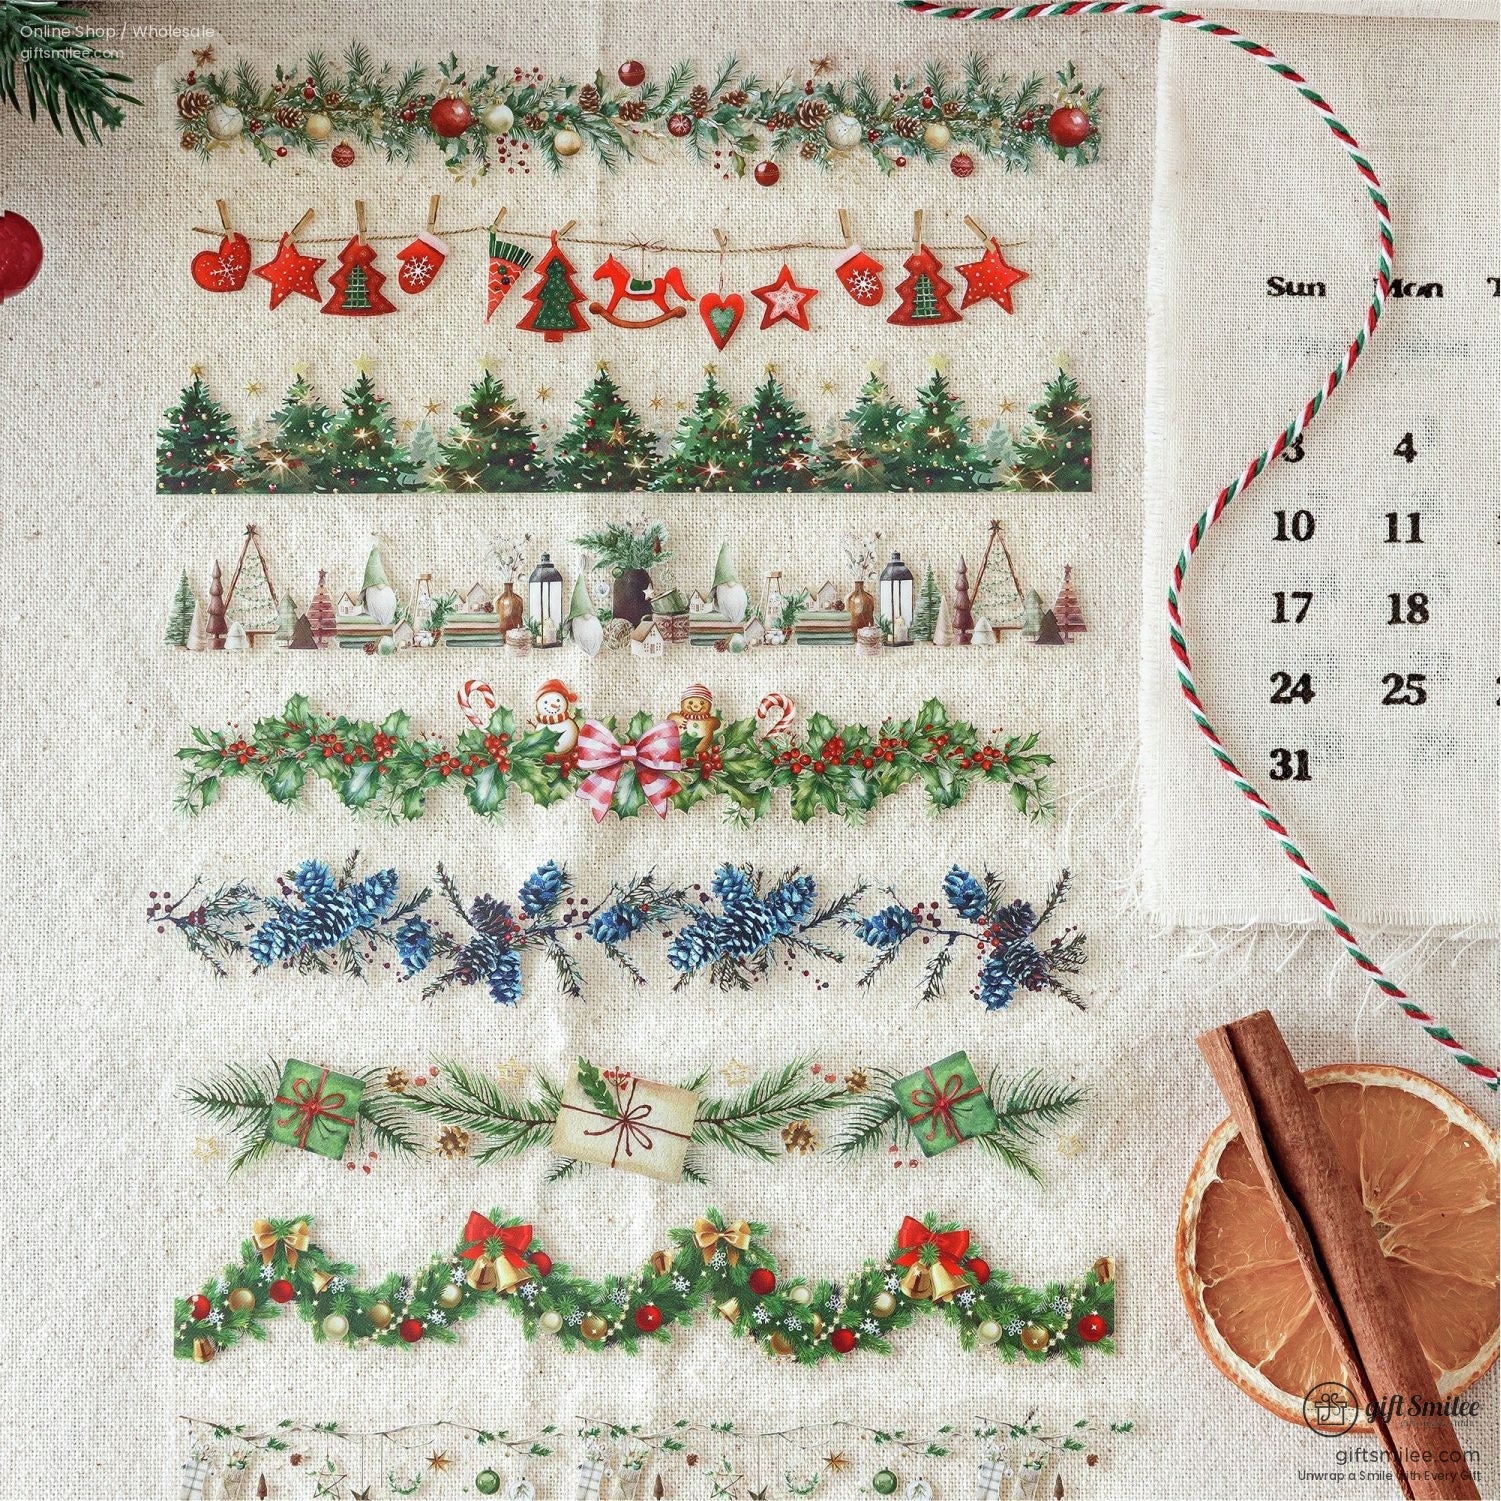 Online Shop / Wholesale
giftsmilee.com
Sun Mon T
3 4
10 11
17 18
24 25
31
gift Smilee
giftsmilee.com
Unwrap a Smile with Every Gift